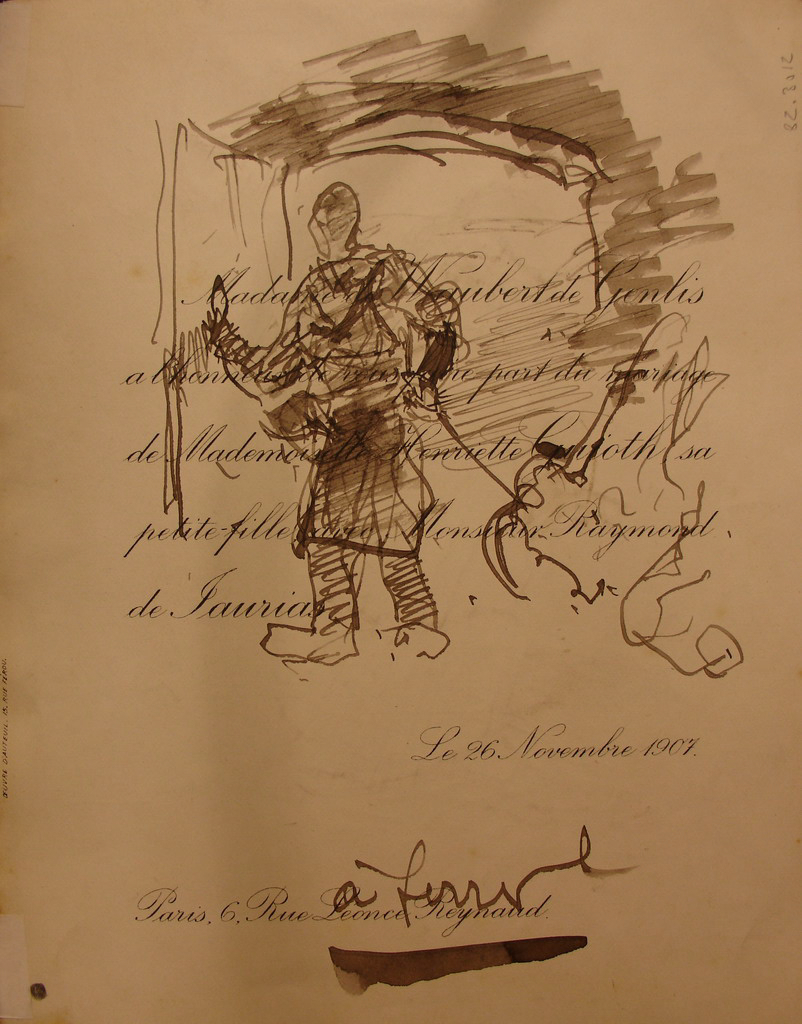 Madame de Maubert de Genlis
a l'honneur de vous faire part du mariage
de Mademoiselle Henriette Guioth sa
petite-fille avec Monsieur Raymond
de Jaurias
Le 26 Novembre 1907.
Paris, 6, Rue Léonce Reynaud.
82.3.12